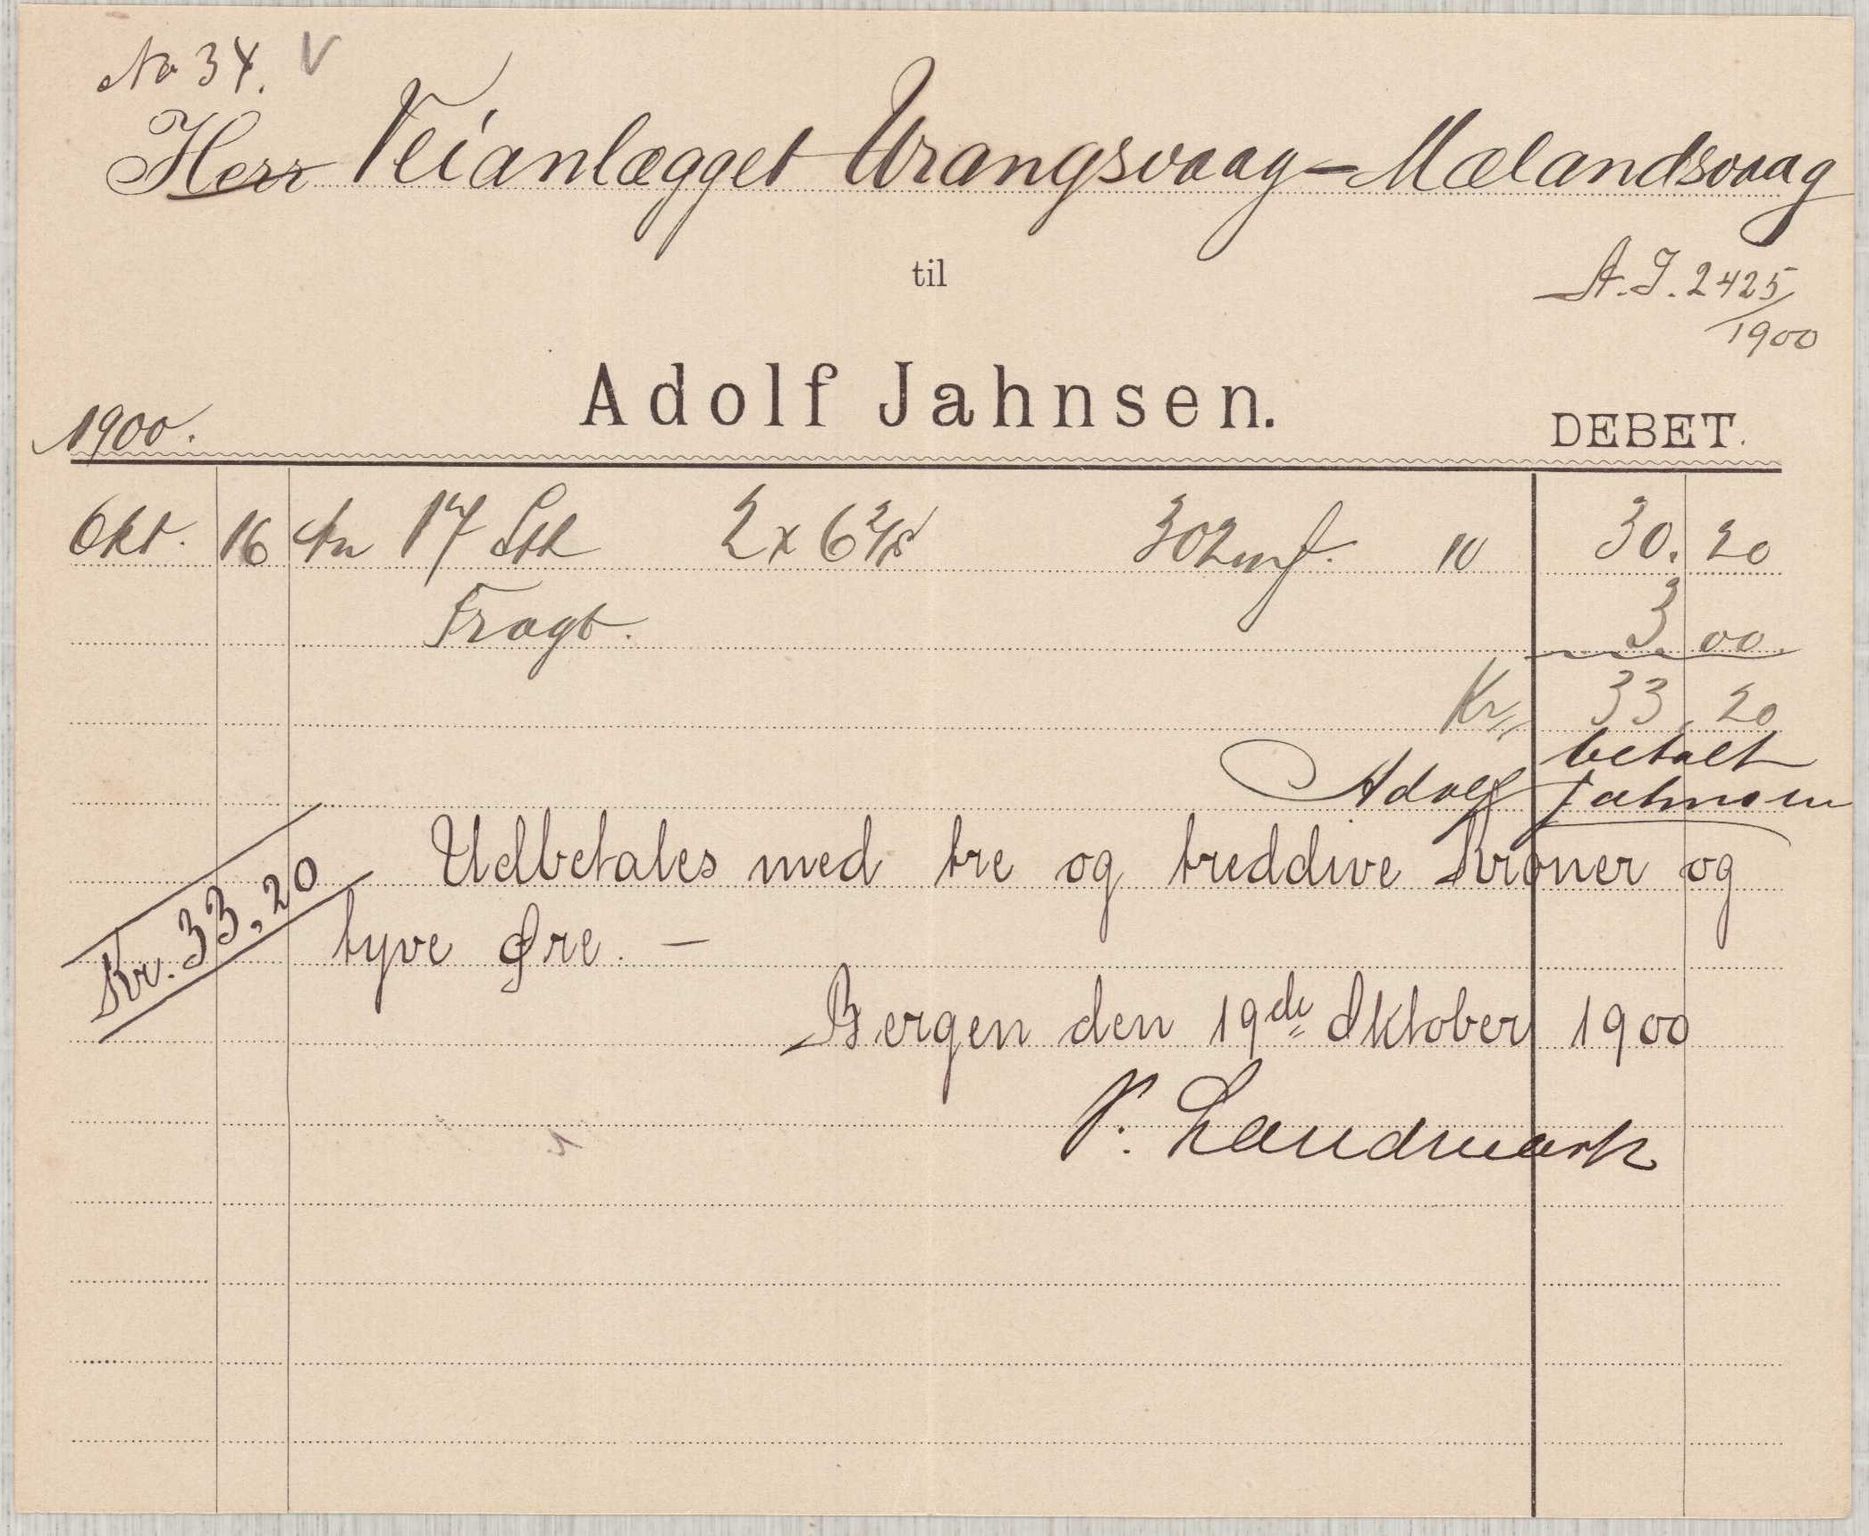 No 34. V
Herr Veianlægget Urangsvaag - Mælandsvaag
til
A. J. 2425/1900
Adolf Jahnsen.
1900.
DEBET.
Okt. 16 An 17 Stk 2 x 6 302 mf. 10 30. 20
Fragt. 3. 00.
Kr. 33. 20
betalt
Adolf Jahnsen
Udbetales med tre og treddive Kroner og
Kr. 33.20
tyve Øre. —
Bergen den 19de Oktober 1900
P. Landmark